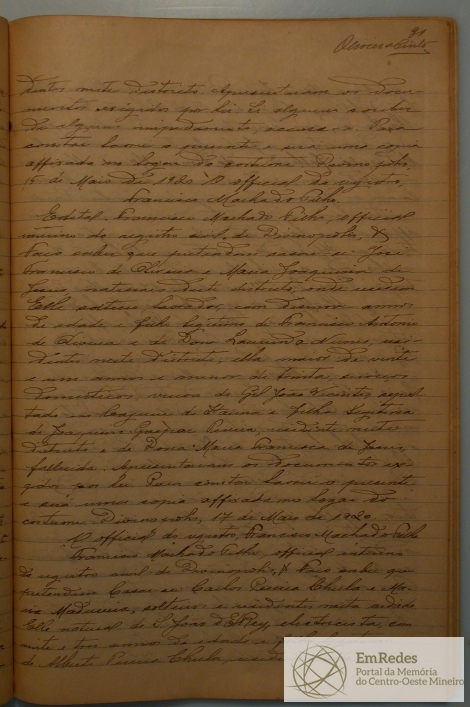 31
Oliveira Pinto
dentes neste districto. Apresentaram os docu-
mentos exigidos por lei. Se alguem souber
de algum impedimento, accuse-o. Para
constar lavro o presente e será uma copia
affixada no logar do costume. Divinopolis,
15 de Maio de 1920. O official do registro,
Francisco Machado Filho.
Edital. Francisco Machado Filho, official
interino do registro civil de Divinopolis, &
Faço saber que pretendem casar-se José
Francisco de Oliveira e Maria Joaquina de
Jesus, naturaes deste districto, onde residem
Elle solteiro, lavrador, com annos
de edade e filho legitimo de Francisco Antonio
de Oliveira e de Dona Laurinda Nunes, resi-
dentes neste districto; ella maior de vinte
e um annos e menor de trinta, serviços
domesticos, viuva de Gil João
de Itauna e filha legitima
de Joaquim Gaspar Pereira, residente neste
districto e de Dona Maria Francisca de Jesus,
fallecida. Apresentaram os documentos exi-
gidos por lei. Para constar lavro o presente
e será uma copia affixada no logar do
costume. Divinopolis, 17 de Maio de 1920
O official do registro, Francisco Machado Filho
Francisco Machado Filho, official interino
do registro civil de Divinopolis, & Faço saber que
pretendem casar-se Carlos Pereira e Ma-
ria Madureira, solteiros e residentes nesta cidade
Elle natural de S. João d'El-Rey, electricista, com
vinte e tres annos de edade e filho
de Alberto Pereira
EmRedes
Portal da Memória
do Centro-Oeste Mineiro